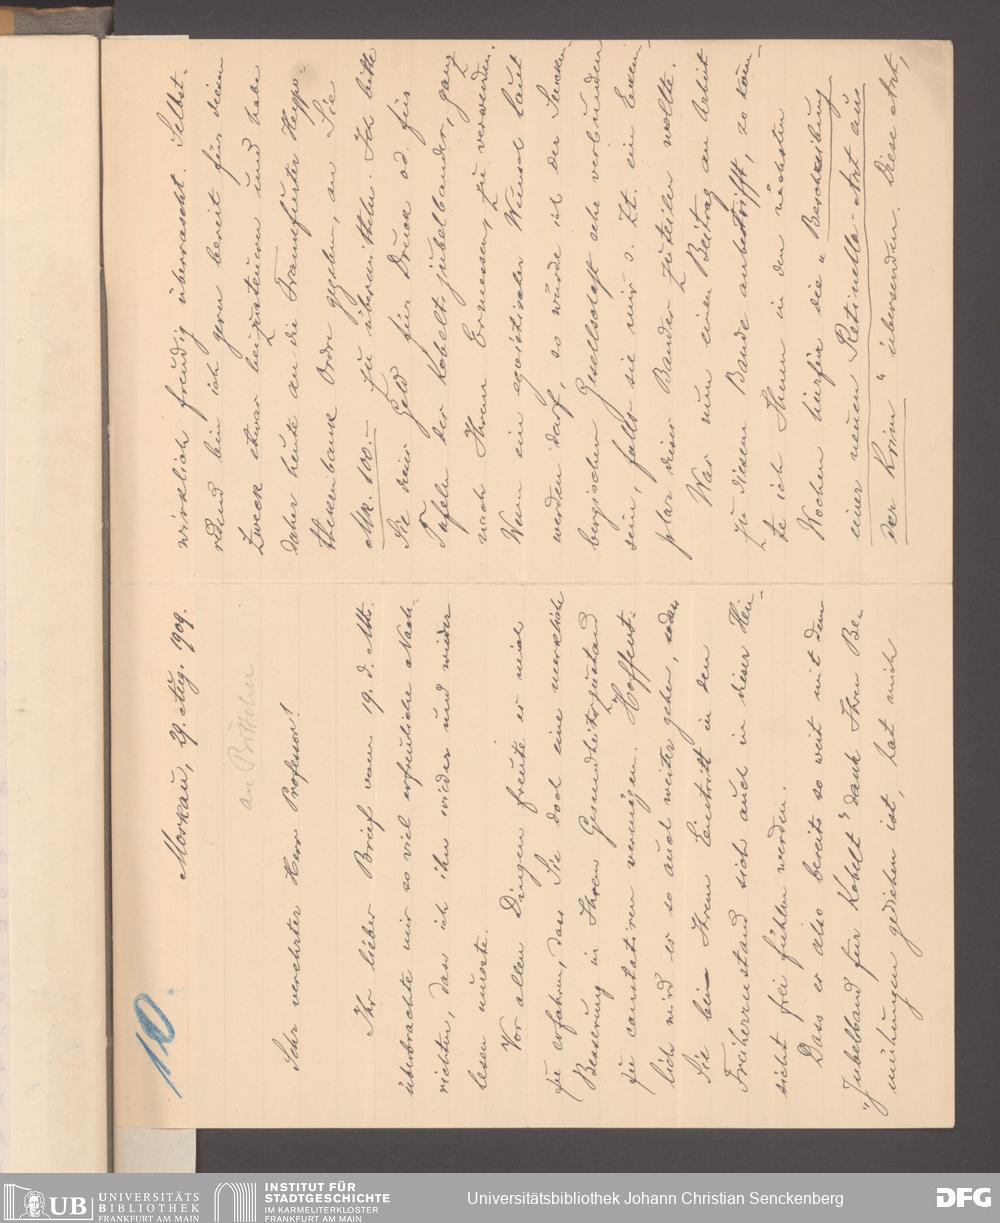 10.
Moskau, 29. Aug. 1909.
an Böttcher
Sehr verehrter Herr Professor!
Ihr lieber Brief vom 19. d. Mts.
überbrachte mir so viel erfreuliche Nach-
richten, dass ich ihn wieder und wieder
lesen musste.
Vor allen Dingen freute es mich
zu erfahren, dass Sie doch eine merkliche
Besserung in Ihrem Gesundheitszustand
zu constatiren vermögen. Hoffent-
lich wird es so auch weiter gehen, sodass
Sie bei Ihrem Eintritt in den
Freiherrnstand sich auch in dieser Hin-
sicht frei fühlen werden.
Dass es also bereits so weit mit dem
"Jubelband für Kobelt" dank Ihren Be-
mühungen gediehen ist, hat mich
wirklich freudig überrascht. Selbst-
redend bin ich gern bereit für diesen
Zweck etwas beizusteuern und habe
daher heute an die Frankfurter Hypo-
thekenbank Ordre gegeben, an Sie
Mk. 100.– zu übermitteln. Ich bitte
Sie dies Geld für Druck od. für
Tafeln der Kobelt-Jubelbandes, ganz
nach Ihrem Ermessen, zu verwenden.
Wenn ein egoistischer Wunsch laut
werden darf, so würde ich der Sencken-
bergischen Gesellschaft sehr verbunden
sein, falls sie mir s. Zt. ein Exem-
plar dieses Bandes zuteilen wollte.
Was nun einen Beitrag an Arbeit
zu diesem Bande anbetrifft, so könn-
te ich Ihnen in den nächsten
Wochen hierfür die "Beschreibung
einer neuen Retinella-Art aus
der Krim" übersenden. Diese Art,
UB
UNIVERSITÄTS
BIBLIOTHEK
FRANKFURT AM MAIN
INSTITUT FÜR
STADTGESCHICHTE
IM KARMELITERKLOSTER
FRANKFURT AM MAIN
Universitätsbibliothek Johann Christian Senckenberg
DFG